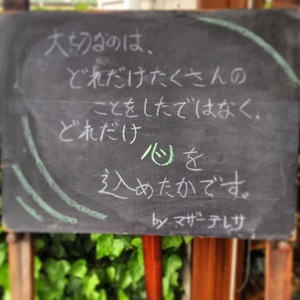 大切なのは、
どれだけたくさんの
ことをしたではなく、
どれだけ
心を
込めたかです。
by マザーテレサ